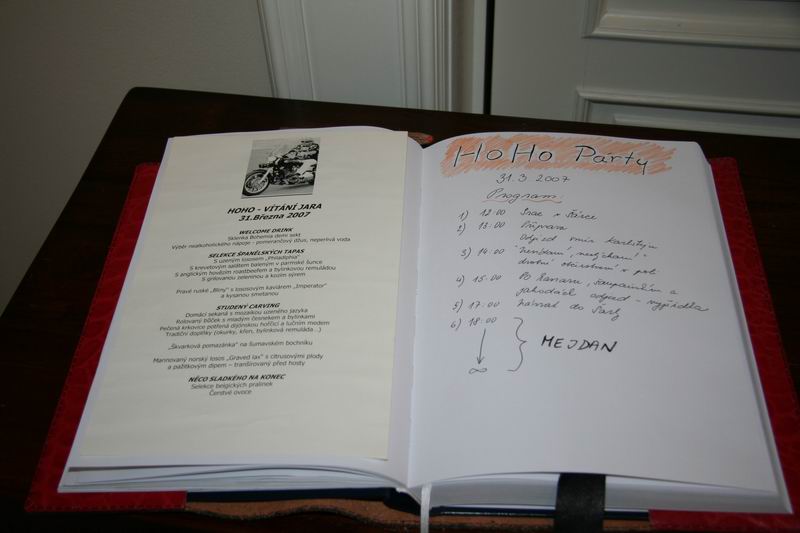 HOHO - VÍTÁNÍ JARA
31.Března 2007
WELCOME DRINK
Sklenka Bohemia demi sekt
Výběr nealkoholického nápoje - pomerančový džus, neperlivá voda
SELEKCE ŠPANĚLSKÝCH TAPAS
S uzeným lososem „Philadlphia"
S krevetovým salátem baleným v parmské šunce
S anglickým hovězím roastbeefem a bylinkovou remuládou
S grilovanou zeleninou a kozím sýrem
Pravé ruské „Bliny" s lososovým kaviárem „Imperator"
a kysanou smetanou
STUDENÝ CARVING
Domácí sekaná s mozaikou uzeného jazyka
Rolovaný bůček s mladým česnekem a bylinkami
Pečená krkovice potřená dijónskou hořčicí a lučním medem
Tradiční doplňky (okurky, křen, bylinková remuláda…)
„Škvarková pomazánka" na šumavském bochníku
Marinovaný norský losos „Graved lax" s citrusovými plody
a pažitkovým dipem – tranšírovaný před hosty
NĚCO SLADKÉHO NA KONEC
Selekce belgických pralinek
Čerstvé ovoce
HoHo Párty
31.3 2007
Program:
1) 12:00 Sraz v Šárce
2) 13:00 Příprava
Odjezd směr
3) 14:00
4) 15:00 Po a
jahodách odjezd -
5) 17:00 návrat do
6) 18:00
↓
∞
} MEJDAN